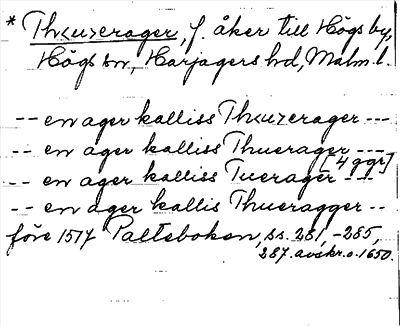 * Th<u>erager, f. åker till Högs by,
Högs sn, Harjagers hd, Malm. l.
-- en ager kalliss Th<u>erager ---
-- en ager kalliss Thuerager ---
[4 ggr]
-- en ager kalliss Tuerager ---
-- en ager kallis Thueragger --
före 1517 Palteboken, ss. 281, -285,
287. avskr. o. 1650.